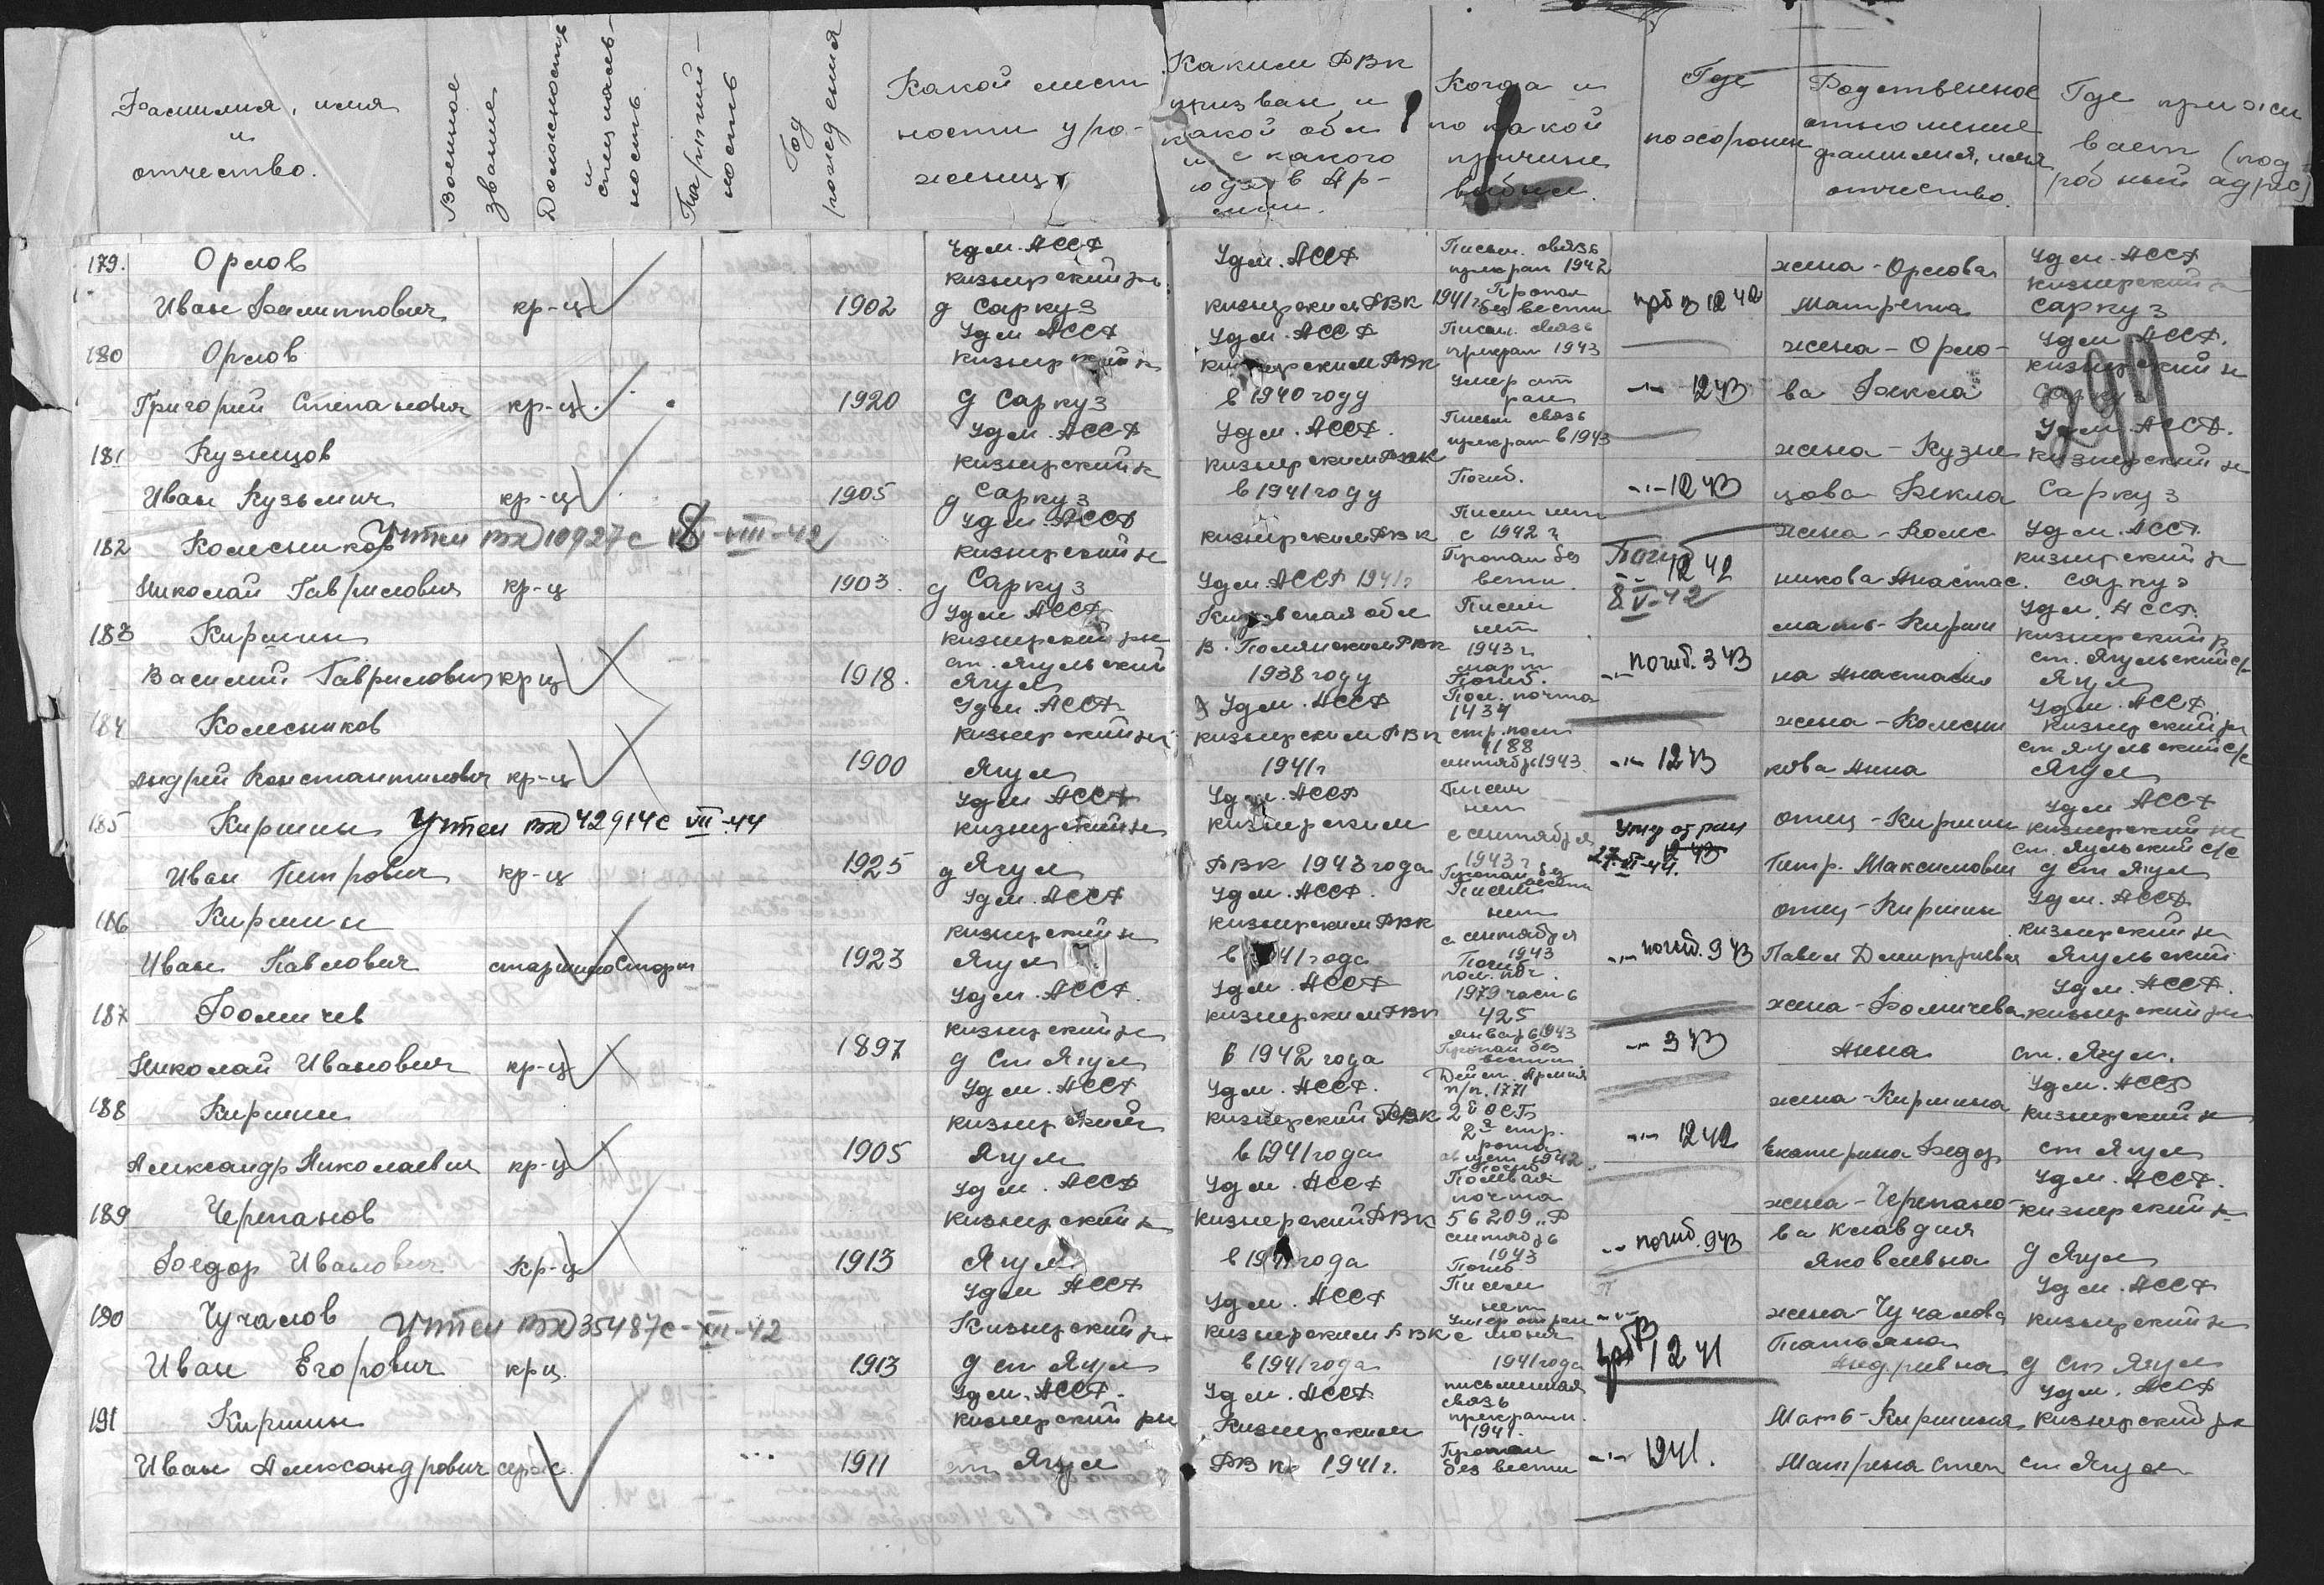 Фамилия, имя и отчество.
Военное звание
Должность и специальность
Партийность
Год рождения
Какой местности уроженец
Каким РВК призван и какой обл и с какого года в Армии.
Когда и по какой причине выбыл.
Где похоронен
Родственное отношение фамилия, имя отчество.
Где проживает (подробный адрес)
294
179. Орлов
Иван Филиппович кр-ц 1902
Удм. АССР
кизнерский р-н
д Саркуз
Удм. АССР
кизнерским РВК 1941г
Письм. связь
прекрат 1942
Пропал
без вести
прб в 12 42
жена - Орлова
Матрена
Удм. АССР
кизнерский
Саркуз
180 Орлов
Григорий Степанович кр-ц. 1920
Удм АССР
кизнерский н
д Саркуз
Удм. АССР
кизнерским РВК
в 1940 году
Писм. связь
прекрат 1943
умер от
ран
-"- 12 43
жена - Орло-
ва Фекла
Удм АССР.
кизнерский н
Саркуз
181 Кузнецов
Иван Кузьмич кр-ц 1905
Удм. АССР
кизнерский н
д Саркуз
Удм. АССР.
кизнерским РВК
в 1941 году
Письм связь
прекрат в 1943
Погиб.
-"- 12 43
жена - Кузне
цова Фекла
Удм. АССР.
кизнерский н
Саркуз
182 Колесников
Учтен вх 10927с 8-VIII-42
Николай Гаврилович кр-ц 1903.
Удм. АССР
кизнерский н
д Саркуз
кизнерским РВК
Удм. АССР 1941г
Писем нет
с 1942 г
Пропал без
вести
Погиб
-"- 12 42
8.V-42
жена - Колес
никова Анастас.
Удм. АССР.
кизнерский н
Саркуз
183 Киршин
Василий Гаврилович кр ц 1918.
Удм АССР
кизнерский рн
ст. Ягульский
Ягул
Кировская обл
В. Полянским РВК
1938 году
Писем
нет
1943 г
март
Погиб.
-"- погиб. 3 43
мать - Кирши
на Анастасия
Удм. АССР.
кизнерский р
ст. Ягульский с/с
Ягул
184 Колесников
Андрей Константинович кр-ц 1900
Удм. АССР
кизнерский рн
Ягул
Удм. АССР
кизнерским РВК
1941г
Пол. почта
1434
стр. полк
1188
сентября 1943
-"- 12 43
жена - Колесни
кова Анна
Удм. АССР.
кизнерский рн
ст Ягульский с/с
Ягул
185 Киршин Учтен вх 42914с VII-44
Иван Петрович кр-ц 1925
Удм АССР
кизнерский н
д Ягул
Удм. АССР
кизнерским
РВК 1943 года
Писем
нет
с сентября
1943 г
Пропал без
вести
Умер от ран
12 43
отец - Киршин
Петр. Максимович
Удм АССР
кизнерский н
ст. Ягульский с/с
д ст Ягул
186 Киршин
Иван Павлович старшина 1923
Удм. АССР
кизнерский н
Ягул
Удм. АССР.
кизнерским РВК
в 1941 года
Писем
нет
с сентября
1943
Погиб
-"- погиб. 9 43
отец - Киршин
Павел Дмитриевич
Удм. АССР.
кизнерский н
Ягульский
187 Фомичев
Николай Иванович кр-ц 1897
Удм. АССР.
кизнерский н
д Ст Ягул
Удм. АССР
кизнерским РВК
в 1942 года
пол. поч.
1979 часть
425
январь 1943
Пропал без
вести
-"- 3 43
жена - Фомичева
Анна
Удм. АССР.
кизнерский рн
ст. Ягул.
188 Киршин
Александр Николаевич кр-ц 1905
Удм. АССР
кизнерский
Ягул
Удм. АССР.
кизнерский РВК
в 1941 года
Дейст. Армия
п/п. 1771
2й ОСБ
2я стр.
рота
август 1942
Погиб
-"- 12 42
жена - Киршина
Екатерина Федор
Удм. АССР
кизнерский н
ст Ягул
189 Черепанов
Федор Иванович кр-ц 1913
Удм. АССР
кизнерский н
Ягул
Удм. АССР
кизнерский РВК
в 1941 года
Полевая
почта
56209 "Р
сентябрь
1943
Погиб
-"- погиб. 9 43
жена - Черепано-
ва Клавдия
Яковлевна
Удм. АССР.
кизнерский н
д Ягул
190 Чучалов Учтен вх 35487с-XII-42
Иван Егорович кр ц. 1913
Удм АССР
Кизнерский н
д ст Ягул
Удм. АССР
кизнерским РВК
в 1941 года
Писем
нет
Умер от ран
с июня
1941 года
12 41
жена - Чучалова
Татьяна
Андреевна
Удм АССР
кизнерский н
д Ст Ягул
191 Киршин
Иван Александрович серж. 1911
Удм. АССР.
кизнерский рн
ст Ягул
Удм. АССР
Кизнерским
РВК 1941г.
письменная
связь
прекратил.
1941.
Пропал
без вести
-"- 1941.
Мать - Киршиня
Матрена Степ
Удм. АССР
кизнерский рн
ст Ягул